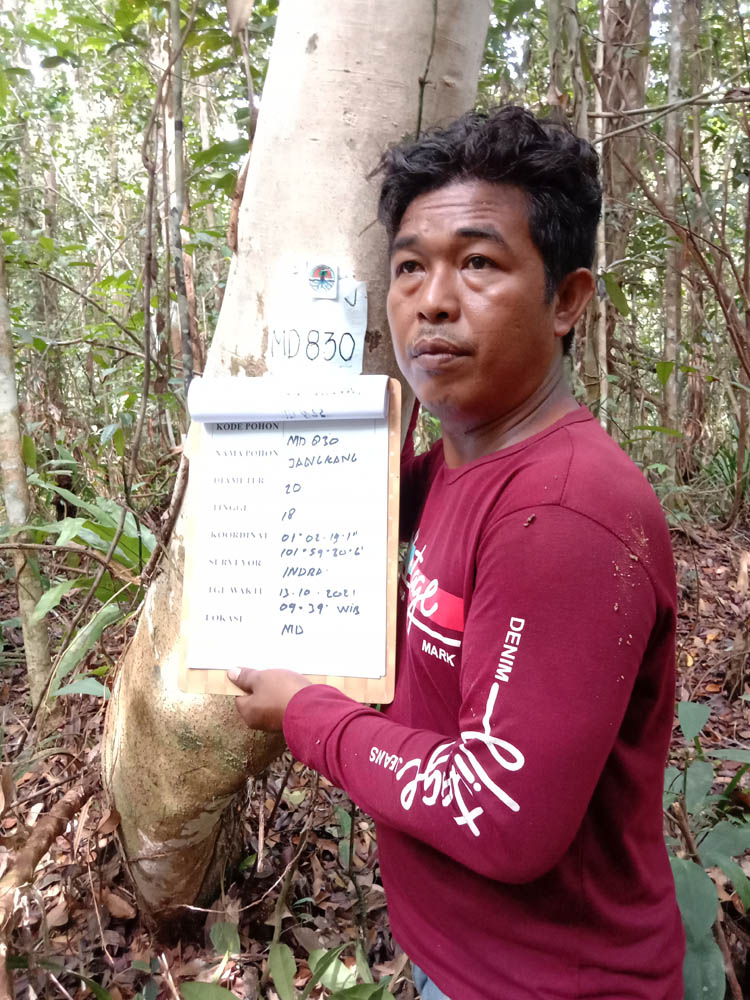 MD830
KODE POHON MD 830
NAMA POHON JANGKANG
DIAMETER 20
TINGGI 18
KOORDINAT 01° 02' 19.1"
101° 59' 20.6"
SURVEYOR INDRA
TGL WAKTU 13.10.2021
09.39 WIB
LOKASI MD
MARK
DENIM
JEANS